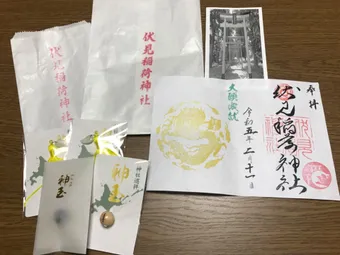 伏見稲荷神社
伏見稲荷神社
奉拝
伏見稲荷神社
大願成就
令和五年二月十一日
神玉
神社巡拝
神玉